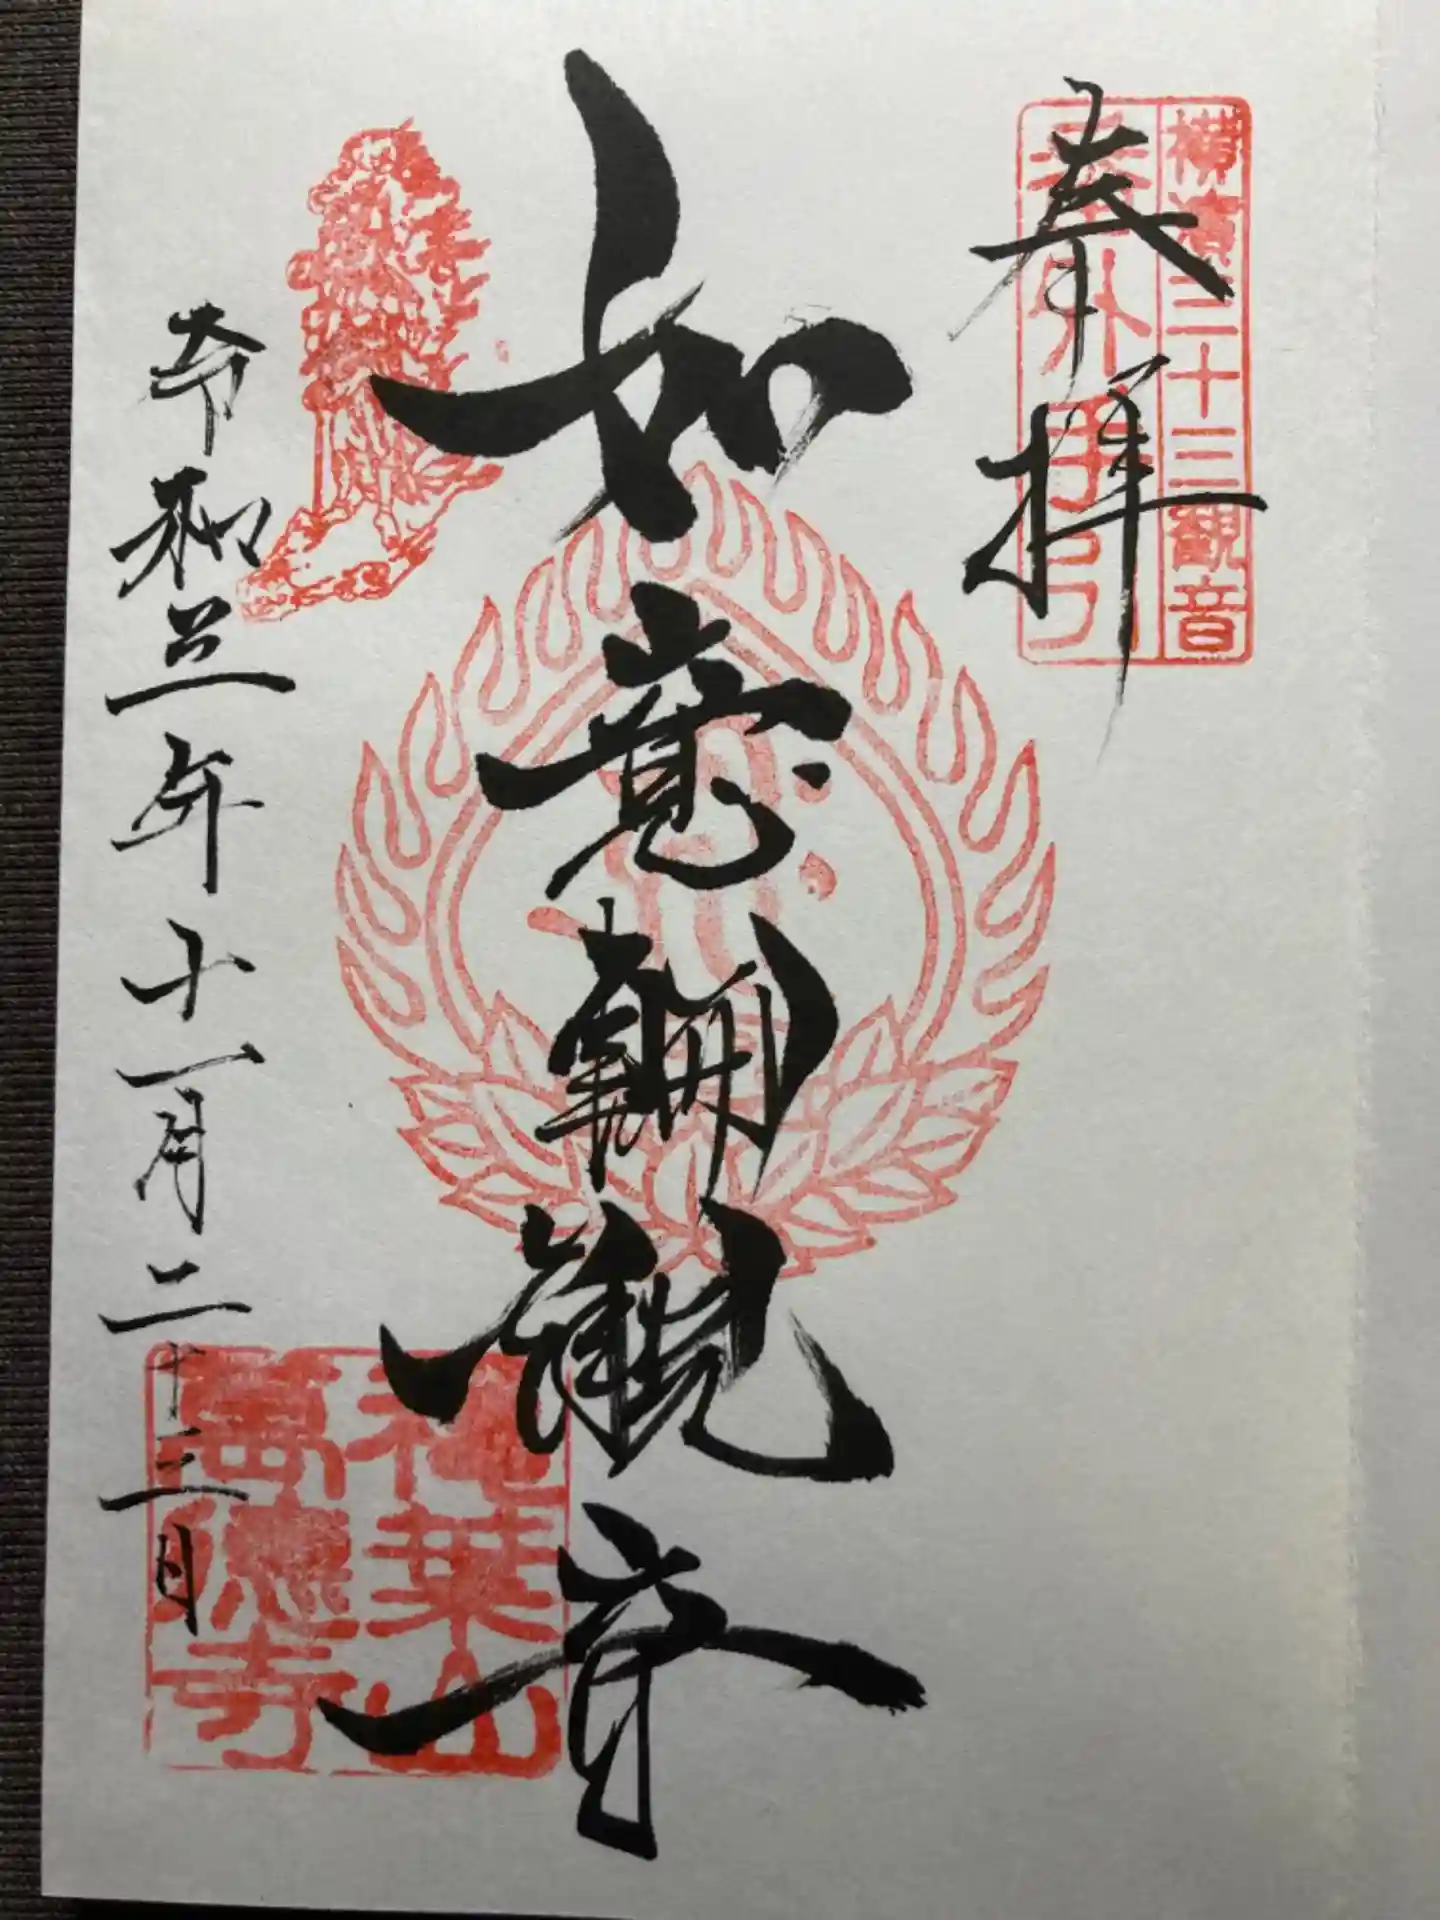 横濱三十三観音
番外手引
奉拝
如意輪観音
令和三年十一月二十三日
葉山
萬徳寺